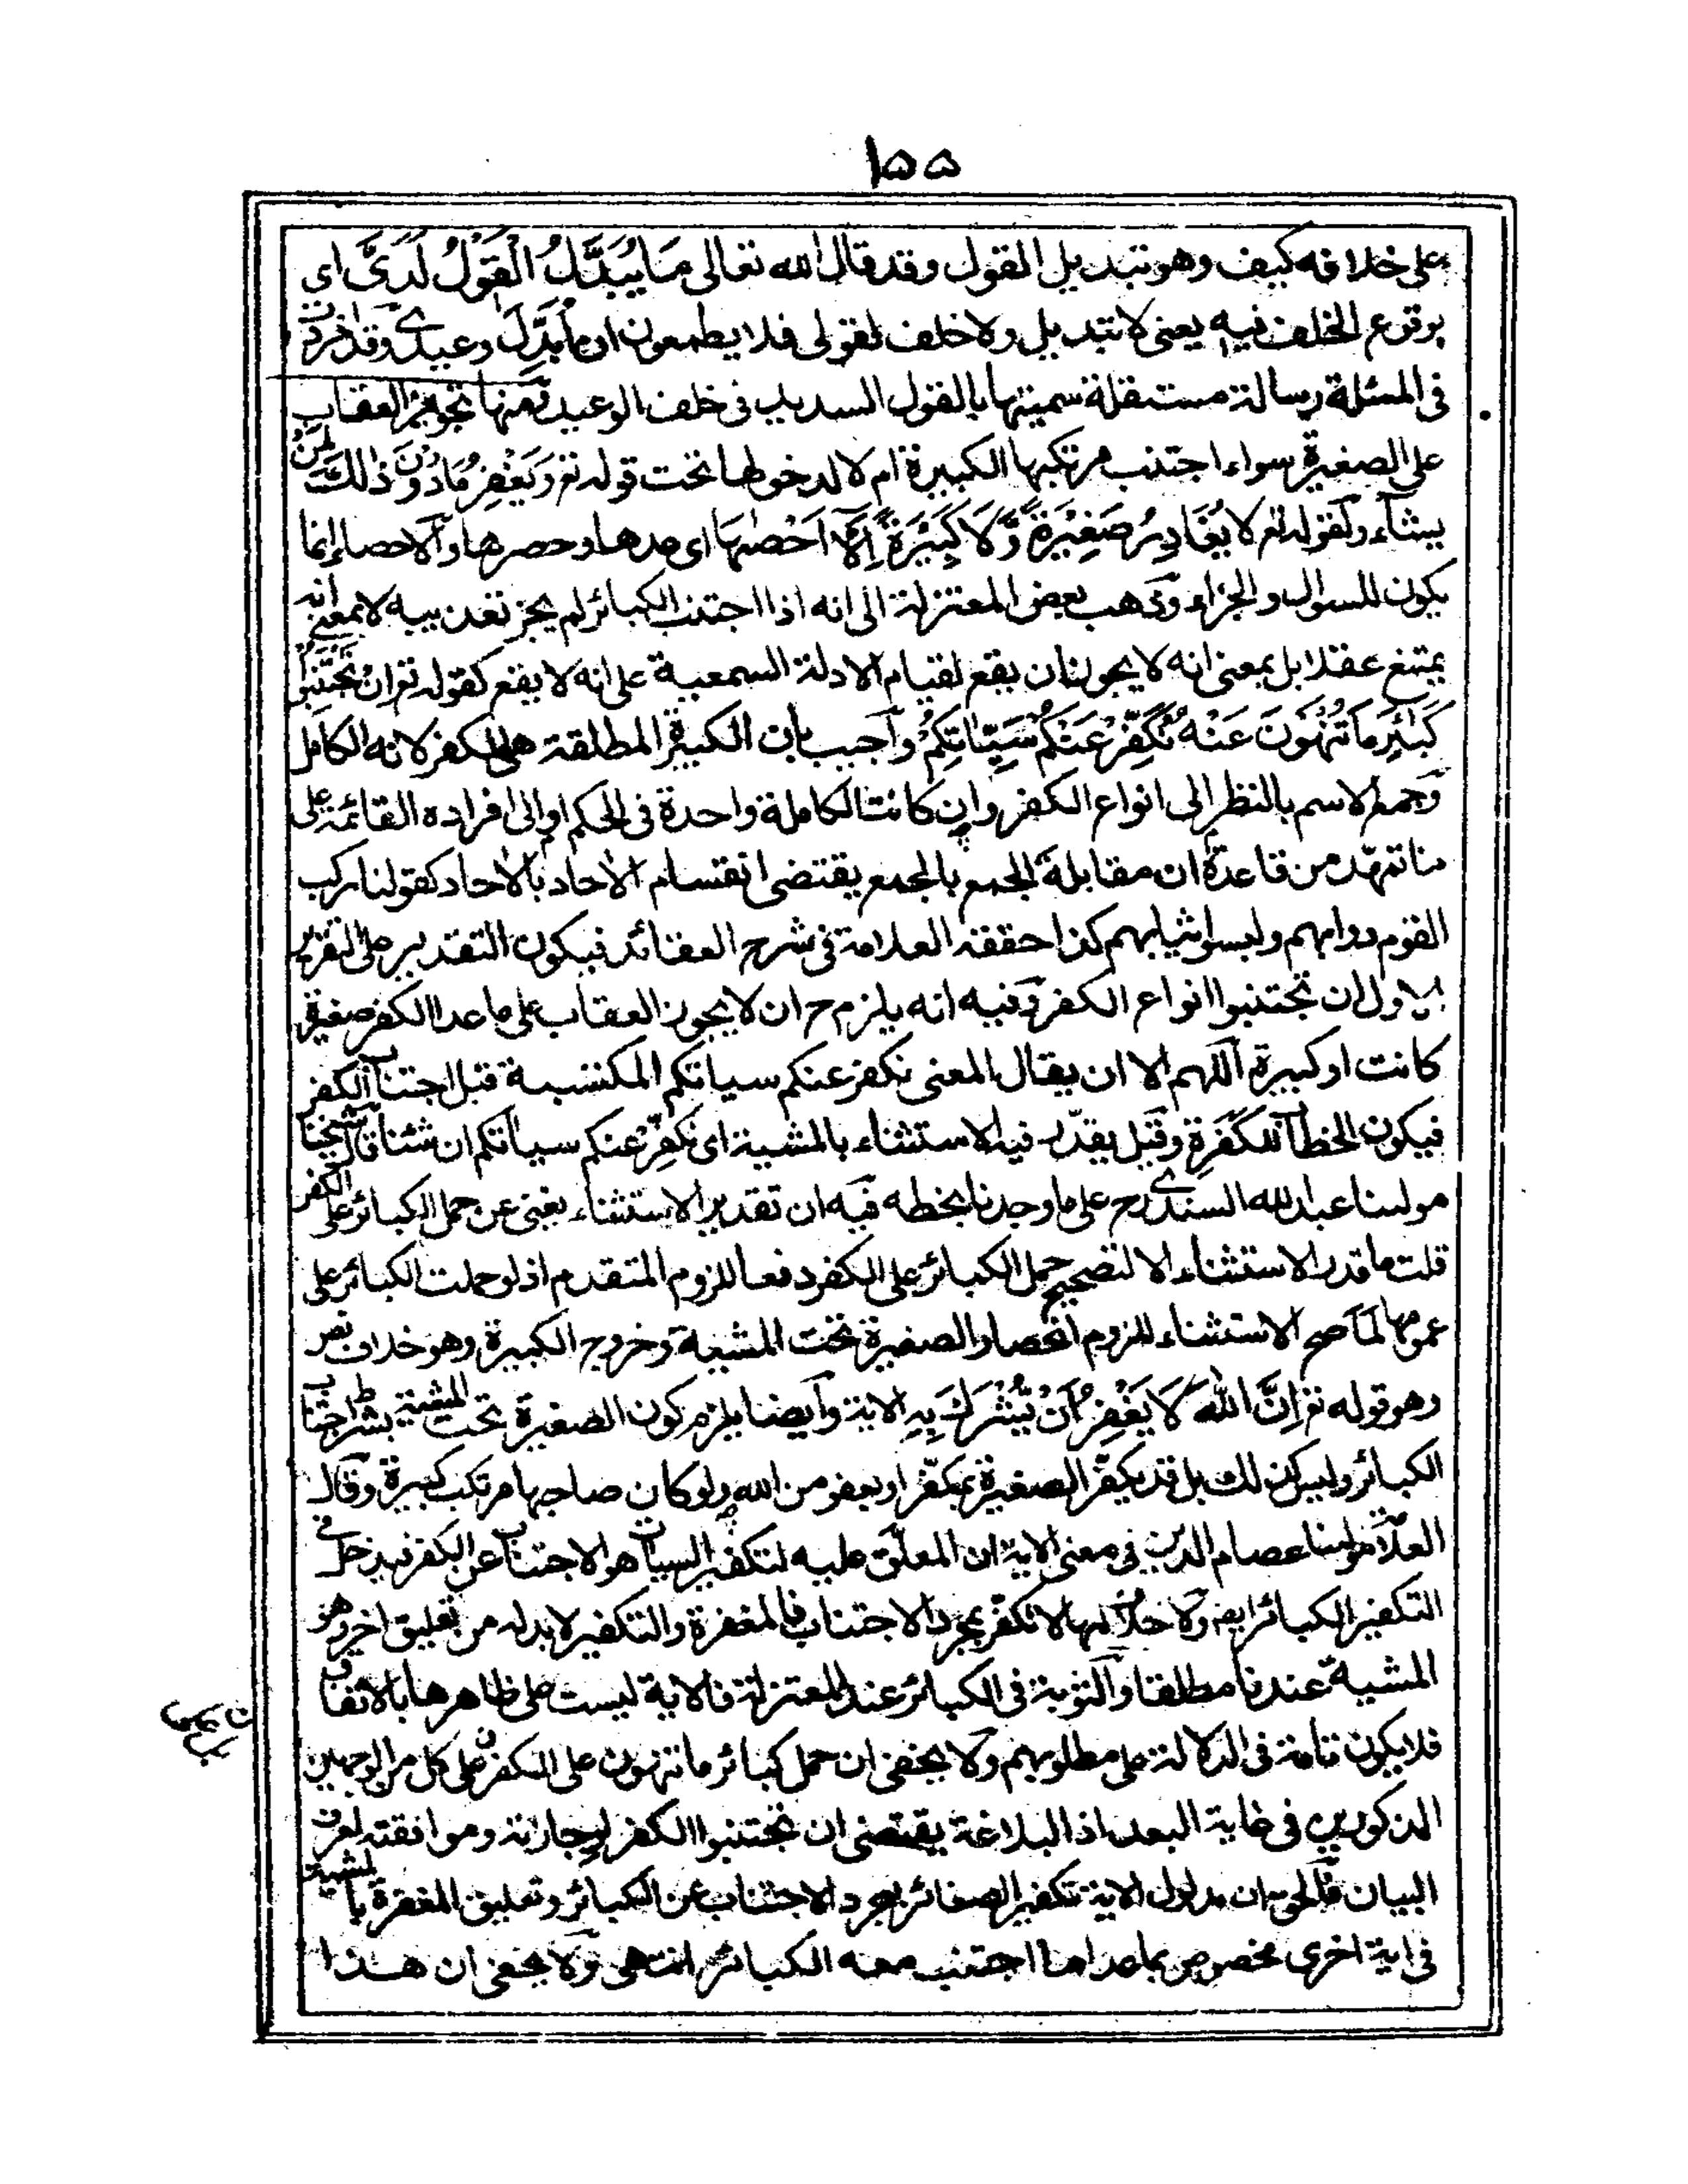 ١٥٥
على خلافه كيف وهو تبديل القول وقد قال الله تعالى مَا يُبَدَّلُ الْقَوْلُ لَدَيَّ اى
بوقوع الخلف فيه يعنى لا تبديل ولا خلف لقولى فلا يطمعون ان اُبَدِّلَ وعيدى وقد افردت
فى المسئلة رسالة مستقلة سميتها بالقول السديد فى خلف الوعيد ومنها تجويز العقاب
على الصغيرة سواء اجتنب مرتكبها الكبيرة ام لا لدخولها تحت قوله تع وَيَغْفِرُ مَا دُوْنَ ذٰلِكَ لِمَنْ
يشآء ولقوله تع لا يُغَادِرُ صَغِيْرَةً وَّلَا كَبِيْرَةً اِلَّآ اَحْصٰىهَا اى عدها وحصرها والاحصاء انما
يكون للسوال والجزاء وذهب بعض المعتزلة الى انه اذا اجتنب الكبائر لم يجز تعذيبه لا بمعنى انه
يمتنع عقلا بل بمعنى انه لا يجوز ان يقع لقيام الادلة السمعية على انه لا يقع كقوله تع اِنْ تَجْتَنِبُوْا
كَبَآئِرَ مَا تُنْهَوْنَ عَنْهُ نُكَفِّرْ عَنْكُمْ سَيِّاٰتِكُمْ واجيب بان الكبيرة المطلقة هى الكفر لانه الكامل
وجمع الاسم بالنظر الى انواع الكفر وان كانت الكاملة واحدة فى الحكم او الى افراده القائمة على
ما تمهّد من قاعدة ان مقابلة الجمع بالجمع يقتضى انقسام الاحاد بالاحاد كقولنا ركب
القوم دوابهم ولبسوا ثيابهم كذا حققه العلامة فى شرح العقائد فيكون التقدير على التقرير
الاول ان تجتنبوا انواع الكفر وفيه انه يلزم ح ان لا يجوز العقاب على ما عدا الكفر صغيرة
كانت او كبيرة اللهم الا ان يقال المعنى نكفر عنكم سياتكم المكتسبة قبل اجتناب الكفر
فيكون الخطاب للكَفَرة وقيل يقدّر فيه الاستثناء بالمشية اى نكفِّر عنكم سياتكم ان شئنا قال شيخنا
مولىنا عبد الله السندى رح على ما وجدنا بخطه فيه ان تقدير الاستثناء يغنى عن حمل الكبائر على الكفر
قلت ما قدر الاستثناء الا لتصحيح حمل الكبائر على الكفر دفعا للزوم المتقدم اذ لو حملت الكبائر على
عمومها لما صح الاستثناء للزوم انحصار الصغيرة تحت المشية وخروج الكبيرة وهو خلاف نص
وهو قوله تع اِنَّ اللهَ لَا يَغْفِرُ اَنْ يُّشْرَكَ بِهٖ الاية وايضا يلزم كون الصغيرة تحت المشية بشرط اجتناب
الكبائر وليس كذلك بل قد يكفّر الصغيرة بمكفّر او بعفو من الله ولو كان صاحبها مرتكب كبيرة وقال
العلّامة مولىنا عصام الدين فى معنى الاية ان المعلّق عليه لتكفير السيات هو الاجتناب عن الكفر فيدخل فى
التكفير الكبائر ايضا ولا خلاف انها لا تكفّر بمجرد الاجتناب فالمغفرة والتكفير لا بد له من تعليق اخر وهو
المشية عندنا مطلقا والتوبة فى الكبائر عند المعتزلة فالاية ليست على ظاهرها بالاتفاق
فلا يكون تامة فى الدلالة على مطلوبهم ولا يخفى ان حمل كبائر ما تنهون على الكفر على كل من الوجهين
المذكورين فى غاية البعد اذ البلاغة يقتضى ان تجتنبوا الكفر لوجازته وموافقته لعرف
البيان فالحق ان مدلول الاية تكفير الصغائر بمجرد الاجتناب عن الكبائر وتعليق المغفرة بالمشية
فى اية اخرى مخصوص بما عدا ما اجتنب معه الكبائر انتهى ولا يخفى ان هذا